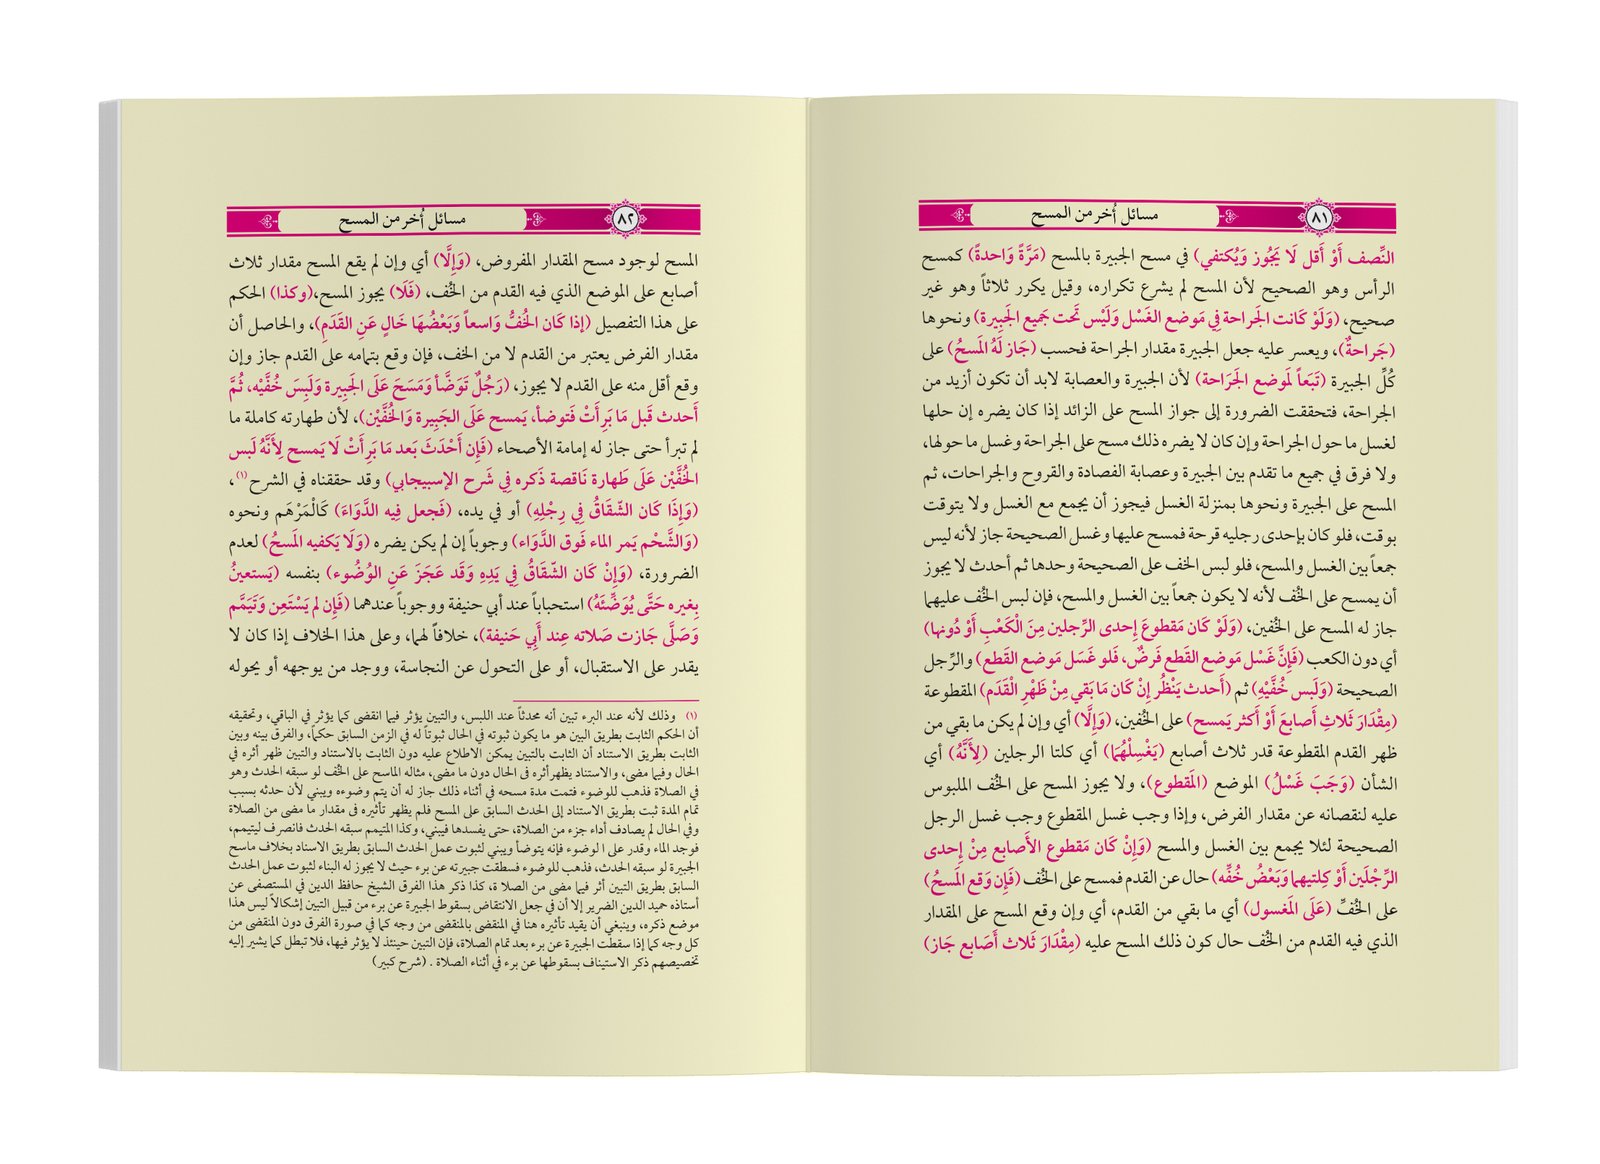 مسائل أُخر من المسح
٨١
النِّصف أَوْ أَقل لَا يَجُوز وَيُكتفي) في مسح الجبيرة بالمسح (مَرَّةً وَاحدةً) كمسح
الرأس وهو الصحيح لأن المسح لم يشرع تكراره، وقيل يكرر ثلاثاً وهو غير
صحيح، (وَلَوْ كَانت الجَراحة فِي مَوضع الغَسْل وَلَيْس تَحت جَميع الجَبِيرة) ونحوها
(جَراحةٌ)، ويعسر عليه جعل الجبيرة مقدار الجراحة فحسب (جَاز لَهُ المَسحُ) على
كُلِّ الجبيرة (تَبَعاً لمَوضع الجَرَاحة) لأن الجبيرة والعصابة لابد أن تكون أزيد من
الجراحة، فتحققت الضرورة إلى جواز المسح على الزائد إذا كان يضره إن حلها
لغسل ما حول الجراحة وإن كان لا يضره ذلك مسح على الجراحة وغسل ما حولها،
ولا فرق في جميع ما تقدم بين الجبيرة وعصابة الفصادة والقروح والجراحات، ثم
المسح على الجبيرة ونحوها بمنزلة الغسل فيجوز أن يجمع مع الغسل ولا يتوقت
بوقت، فلو كان بإحدى رجليه قرحة فمسح عليها وغسل الصحيحة جاز لأنه ليس
جمعاً بين الغسل والمسح، فلو لبس الخف على الصحيحة وحدها ثم أحدث لا يجوز
أن يمسح على الخُف لأنه لا يكون جمعاً بين الغسل والمسح، فإن لبس الخُف عليهما
جاز له المسح على الخُفين، (وَلَوْ كَان مَقطوعَ إِحدى الرِّجلين مِنَ الْكَعْبِ أَوْ دُونها)
أي دون الكعب (فَإِنَّ غَسْل مَوضع القَطع فَرضٌ، فَلو غَسَل مَوضع القَطع) والرِّجل
الصحيحة (وَلَبس خُفَّيْهِ) ثم (أَحدث يَنْظُر إِنْ كَان مَا بَقي مِنْ ظَهْرِ الْقَدَم) المقطوعة
(مِقْدَارَ ثَلاثِ أَصابعَ أَوْ أَكثر يَمسح) على الخُفين، (وَإِلَّا) أي وإن لم يكن ما بقي من
ظهر القدم المقطوعة قدر ثلاث أصابع (يَغْسِلْهُمَا) أي كلتا الرجلين (لِأَنَّهُ) أي
الشأن (وَجَبَ غَسْلُ) الموضع (المَقطوع)، ولا يجوز المسح على الخُف الملبوس
عليه لنقصانه عن مقدار الفرض، وإذا وجب غسل المقطوع وجب غسل الرجل
الصحيحة لئلا يجمع بين الغسل والمسح (وَإِنْ كَان مَقطوع الأَصابع مِنْ إِحدى
الرِّجْلَين أَوْ كِلتيهما وَبَعْضُ خُفِّه) خال عن القدم فمسح على الخُف (فَإِن وَقع المَسحُ)
على الخُفِّ (عَلَى المَغسول) أي ما بقي من القدم، أي وإن وقع المسح على المقدار
الذي فيه القدم من الخُف حال كون ذلك المسح عليه (مِقْدَارَ ثَلاث أَصَابع جَاز)
مسائل أُخر من المسح
٨٢
المسح لوجود مسح المقدار المفروض، (وَإِلَّا) أي وإن لم يقع المسح مقدار ثلاث
أصابع على الموضع الذي فيه القدم من الخُف، (فَلَا) يجوز المسح،(وكذا) الحكم
على هذا التفصيل (إذا كَان الخُفُّ وَاسعاً وَبَعْضُهَا خَالٍ عَنِ القَدَمِ)، والحاصل أن
مقدار الفرض يعتبر من القدم لا من الخف، فإن وقع بتمامه على القدم جاز وإن
وقع أقل منه على القدم لا يجوز، (رَجُلٌ تَوَضَّأ وَمَسَحَ عَلَى الجَبِيرة وَلَبِسَ خُفَّيْه، ثُمَّ
أَحدث قَبل مَا بَرِأَتْ فَتوضأ، يَمسح عَلَى الجَبِيرة وَالخُفَّيْن)، لأن طهارته كاملة ما
لم تبرأ حتى جاز له إمامة الأصحاء (فَإِن أَحْدَثَ بَعد مَا بَرِأَتْ لَا يَمسح لِأَنَّهُ لَبس
الخُفَّيْن عَلَى طَهارة نَاقصة ذَكره فِي شَرح الإِسبيجابي) وقد حققناه في الشرح(١)،
(وَإِذَا كَان الشّقَاقُ فِي رِجْلِهِ) أو في يده، (فَجعل فِيه الدَّوَاءَ) كَالْمَرْهَم ونحوه
(وَالشَّحْم يَمر الماء فَوق الدَّوَاء) وجوباً إن لم يكن يضره (وَلَا يَكفيه المَسحُ) لعدم
الضرورة، (وَإِنْ كَان الشّقَاقُ فِي يَدِهِ وَقَد عَجَزَ عَنِ الوُضُوء) بنفسه (يَستعينُ
بِغيره حَتَّى يُوَضِّئَهُ) استحباباً عند أبي حنيفة ووجوباً عندهما (فَإِن لم يَسْتَعِن وَتَيَمَّم
وَصَلَّى جَازت صَلاته عِند أَبِي حَنيفة)، خلافاً لهما، وعلى هذا الخلاف إذا كان لا
يقدر على الاستقبال، أو على التحول عن النجاسة، ووجد من يوجهه أو يحوله
(١) وذلك لأنه عند البرء تبين أنه محدثاً عند اللبس، والتبين يؤثر فيما انقضى كما يؤثر في الباقي، وتحقيقه
أن الحكم الثابت بطريق البين هو ما يكون ثبوته في الحال ثبوتاً له في الزمن السابق حكماً، والفرق بينه وبين
الثابت بطريق الاستناد أن الثابت بالتبين يمكن الاطلاع عليه دون الثابت بالاستناد والتبين ظهر أثره في
الحال وفيما مضى، والاستناد يظهر أثره فى الحال دون ما مضى، مثاله الماسح على الخُف لو سبقه الحدث وهو
في الصلاة فذهب للوضوء فتمت مدة مسحه في أثناء ذلك جاز له أن يتم وضوءه ويبني لأن حدثه بسبب
تمام المدة ثبت بطريق الاستناد إلى الحدث السابق على المسح فلم يظهر تأثيره فى مقدار ما مضى من الصلاة
وفي الحال لم يصادف أداء جزء من الصلاة، حتى يفسدها فيبني، وكذا المتيمم سبقه الحدث فانصرف ليتيمم،
فوجد الماء وقدر على الوضوء فإنه يتوضأ ويبني لثبوت عمل الحدث السابق بطريق الاسناد بخلاف ماسح
الجبيرة لو سبقه الحدث، فذهب للوضوء فسقطت جبيرته عن برء حيث لا يجوز له البناء لثبوت عمل الحدث
السابق بطريق التبين أثر فيما مضى من الصلاة، كذا ذكر هذا الفرق الشيخ حافظ الدين في المستصفى عن
أستاذه حميد الدين الضرير إلا أن في جعل الانتقاض بسقوط الجبيرة عن برء من قبيل التبين إشكالاً ليس هذا
موضع ذكره، وينبغي أن يقيد تأثيره هنا في المنقضي بالمنقضي من وجه كما في صورة الفرق دون المنقضي من
كل وجه كما إذا سقطت الجبيرة عن برء بعد تمام الصلاة، فإن التبين حينئذ لا يؤثر فيها، فلا تبطل كما يشير إليه
تخصيصهم ذكر الاستيناف بسقوطها عن برء في أثناء الصلاة . (شرح كبير)